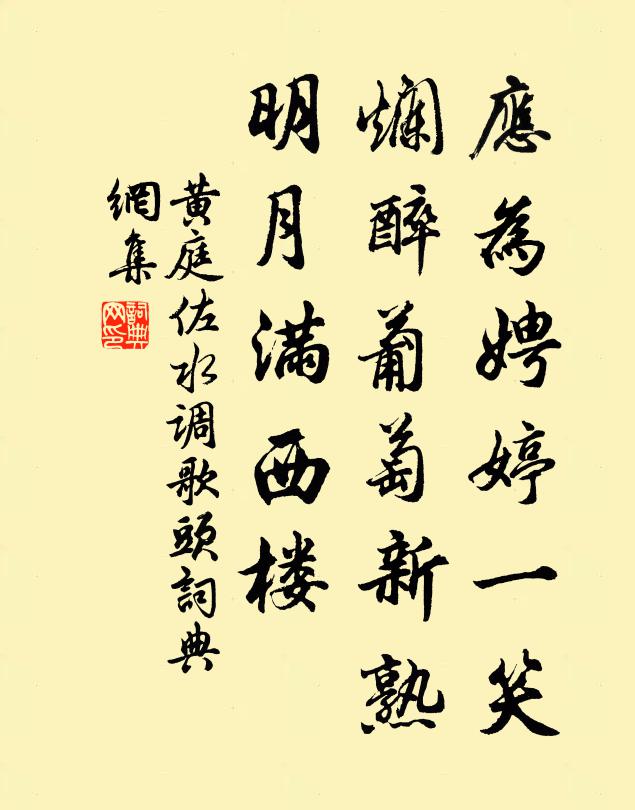 應為娉婷一笑
爛醉葡萄新熟
明月滿西楼
黃庭佐水调歌頭詞典
網集
詞典
网印